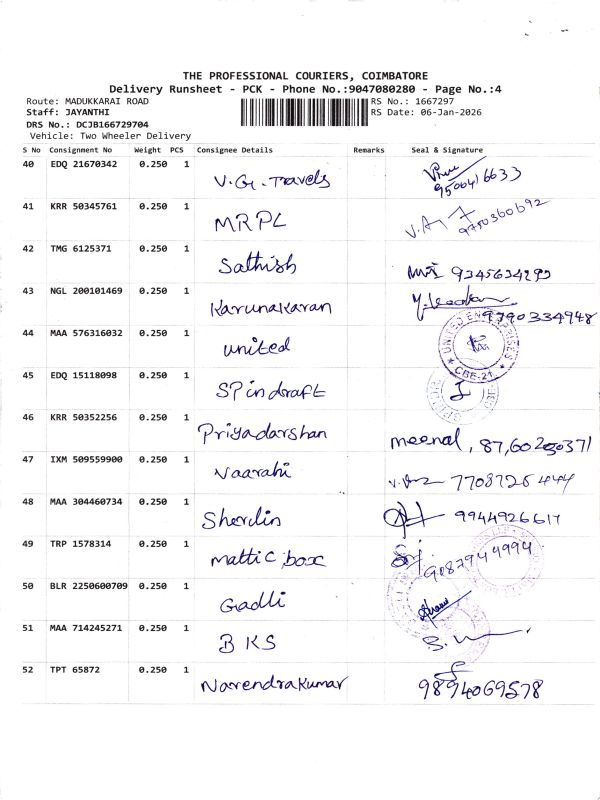 THE PROFESSIONAL COURIERS, COIMBATORE
Delivery Runsheet - PCK - Phone No.:9047080280 - Page No.:4
Route: MADUKKARAI ROAD RS No.: 1667297
Staff: JAYANTHI RS Date: 06-Jan-2026
DRS No.: DCJB166729704
Vehicle: Two Wheeler Delivery
S No Consignment No Weight PCS Consignee Details Remarks Seal & Signature
40 EDQ 21670342 0.250 1 V.G. Travels 9500416633
41 KRR 50345761 0.250 1 MRPL 9750360692
42 TMG 6125371 0.250 1 Sathish 9345634293
43 NGL 200101469 0.250 1 Karunakaran 9790334948
44 MAA 576316032 0.250 1 united UNITED ENTERPRISES CBE-21
45 EDQ 15118098 0.250 1 SPindraft
46 KRR 50352256 0.250 1 Priyadarshan meenal,
47 IXM 509559900 0.250 1 Vaarahi 7708725444
48 MAA 304460734 0.250 1 Sherdin 9944926617
49 TRP 1578314 0.250 1 mattic box 9087944994
50 BLR 2250600709 0.250 1 Gadli
51 MAA 714245271 0.250 1 BKS
52 TPT 65872 0.250 1 Narendrakumar 9894069578